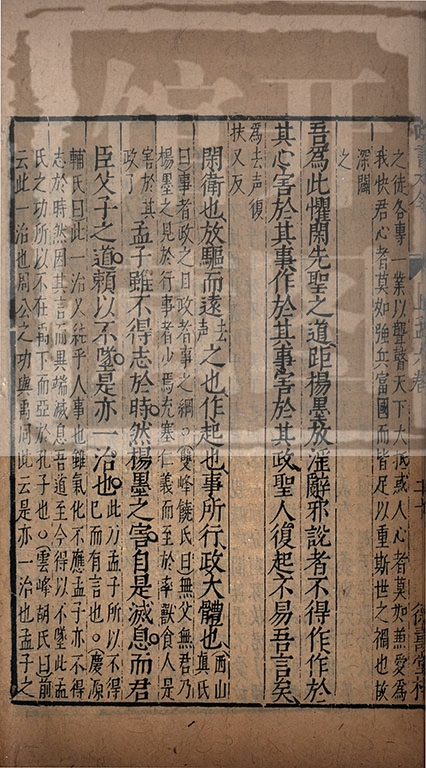 之徒各專一業以聾瞽天下大抵或人心者莫如兼愛為
我快君心者莫如強兵富國而皆足以重斯世之禍也故
深闢
之
吾為此懼閑先聖之道距楊墨放淫辭邪說者不得作作於
其心害於其事作於其事害於其政聖人復起不易吾言矣
為去声復
扶又反
閑衛也放驅而遠去声之也作起也事所行政大體也西山真氏
曰事者政之目政者事之綱○雙峰饒氏曰無父無君乃
楊墨之見於行事者少焉充塞仁義而至於率獸食人是
害於其政了
孟子雖不得志於時然楊墨之害自是滅息而君
臣父子之道頼以不墜是亦一治也此乃孟子所以不得已而有言也○慶源
輔氏曰此一治以結乎人事也雖氣化不應孟子亦不得
志於時然因其言而異端滅息吾道至今得以不墜此孟
氏之功所以不在禹下而亞於孔子也○雲峰胡氏曰前
云此一治也周公之功與禹同此云是亦一治也孟子之
四書大全
上孟六卷
德壽堂梓